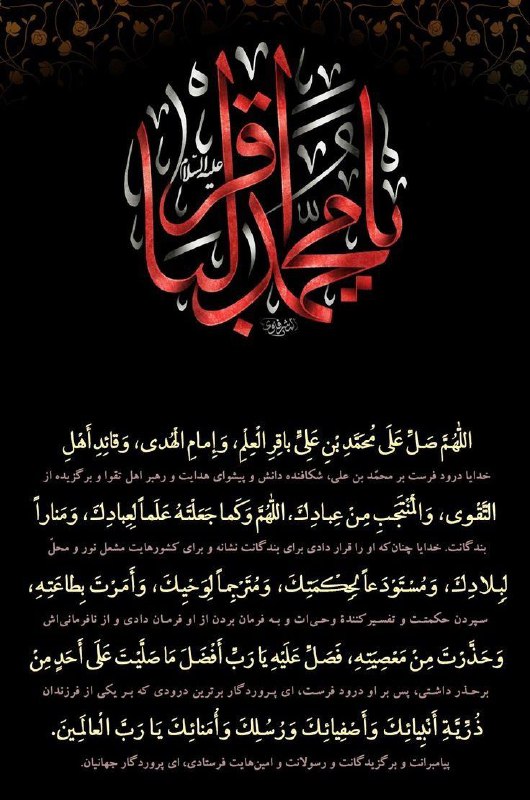 یا محمد الباقر
علیه السلام
اللّٰهُمَّ صَلِّ عَلَى مُحَمَّدِ بْنِ عَلِيٍّ باقِرِ الْعِلْمِ، وَ إِمامِ الْهُدى، وَ قائِدِ أَهْلِ
خدایا درود فرست بر محمّد بن علی، شکافنده دانش و پیشوای هدایت و رهبر اهل تقوا و برگزیده از
التَّقْوى، وَ الْمُنْتَجَبِ مِنْ عِبادِكَ، اللّٰهُمَّ وَ كَما جَعَلْتَهُ عَلَماً لِعِبادِكَ، وَ مَناراً
بندگانت. خدایا چنان‌که او را قرار دادی برای بندگانت نشانه و برای کشورهایت مشعل نور و محلّ
لِبِلادِكَ، وَ مُسْتَوْدَعاً لِحِكْمَتِكَ، وَ مُتَرْجِماً لِوَحْيِكَ، وَ أَمَرْتَ بِطاعَتِهِ،
سپردن حکمتت و تفسیرکنندهٔ وحی‌ات و به فرمان بردن از او فرمان دادی و از نافرمانی‌اش
وَ حَذَّرْتَ مِنْ مَعْصِيَتِهِ، فَصَلِّ عَلَيْهِ يَا رَبِّ أَفْضَلَ مَا صَلَّيْتَ عَلَى أَحَدٍ مِنْ
برحذر داشتی، پس بر او درود فرست، ای پروردگار برترین درودی که بر یکی از فرزندان
ذُرِّيَّةِ أَنْبِيائِكَ وَ أَصْفِيائِكَ وَ رُسُلِكَ وَ أُمَنائِكَ يَا رَبَّ الْعالَمِينَ.
پیامبرانت و برگزیدگانت و رسولانت و امین‌هایت فرستادی، ای پروردگار جهانیان.